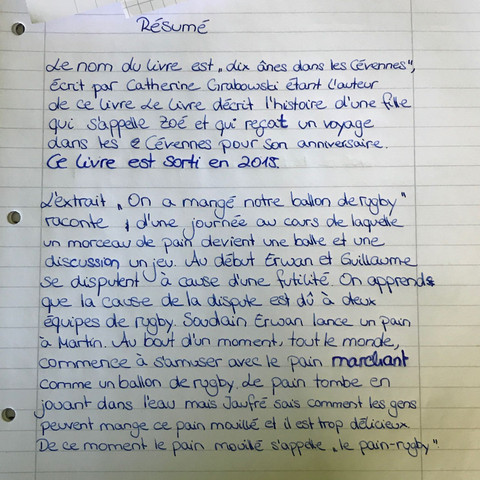 Résumé
Le nom du livre est „dix ânes dans les Cévennes",
écrit par Catherine Grabowski étant l'auteur
de ce livre Le livre décrit l'histoire d'une fille
qui s'appelle Zoé et qui reçoit un voyage
dans les Cévennes pour son anniversaire.
Ce livre est sorti en 2015.
L'extrait „On a mangé notre ballon de rygby"
raconte d'une journée au cours de laquelle
un morceau de pain devient une balle et une
discussion un jeu. Au début Erwan et Guillaume
se disputent à cause d'une futilité. On apprends
que la cause de la dispute est dû à deux
équipes de rygby. Soudain Erwan lance un pain
à Martin. Au bout d'un moment, tout le monde,
commence à s'amuser avec le pain marchant
comme un ballon de rygby. Le pain tombe en
jouant dans l'eau mais Jaufré sais comment les gens
peuvent mange ce pain mouillé et il est trop délicieux.
De ce moment le pain mouillé s'appelle „le pain-rygby".